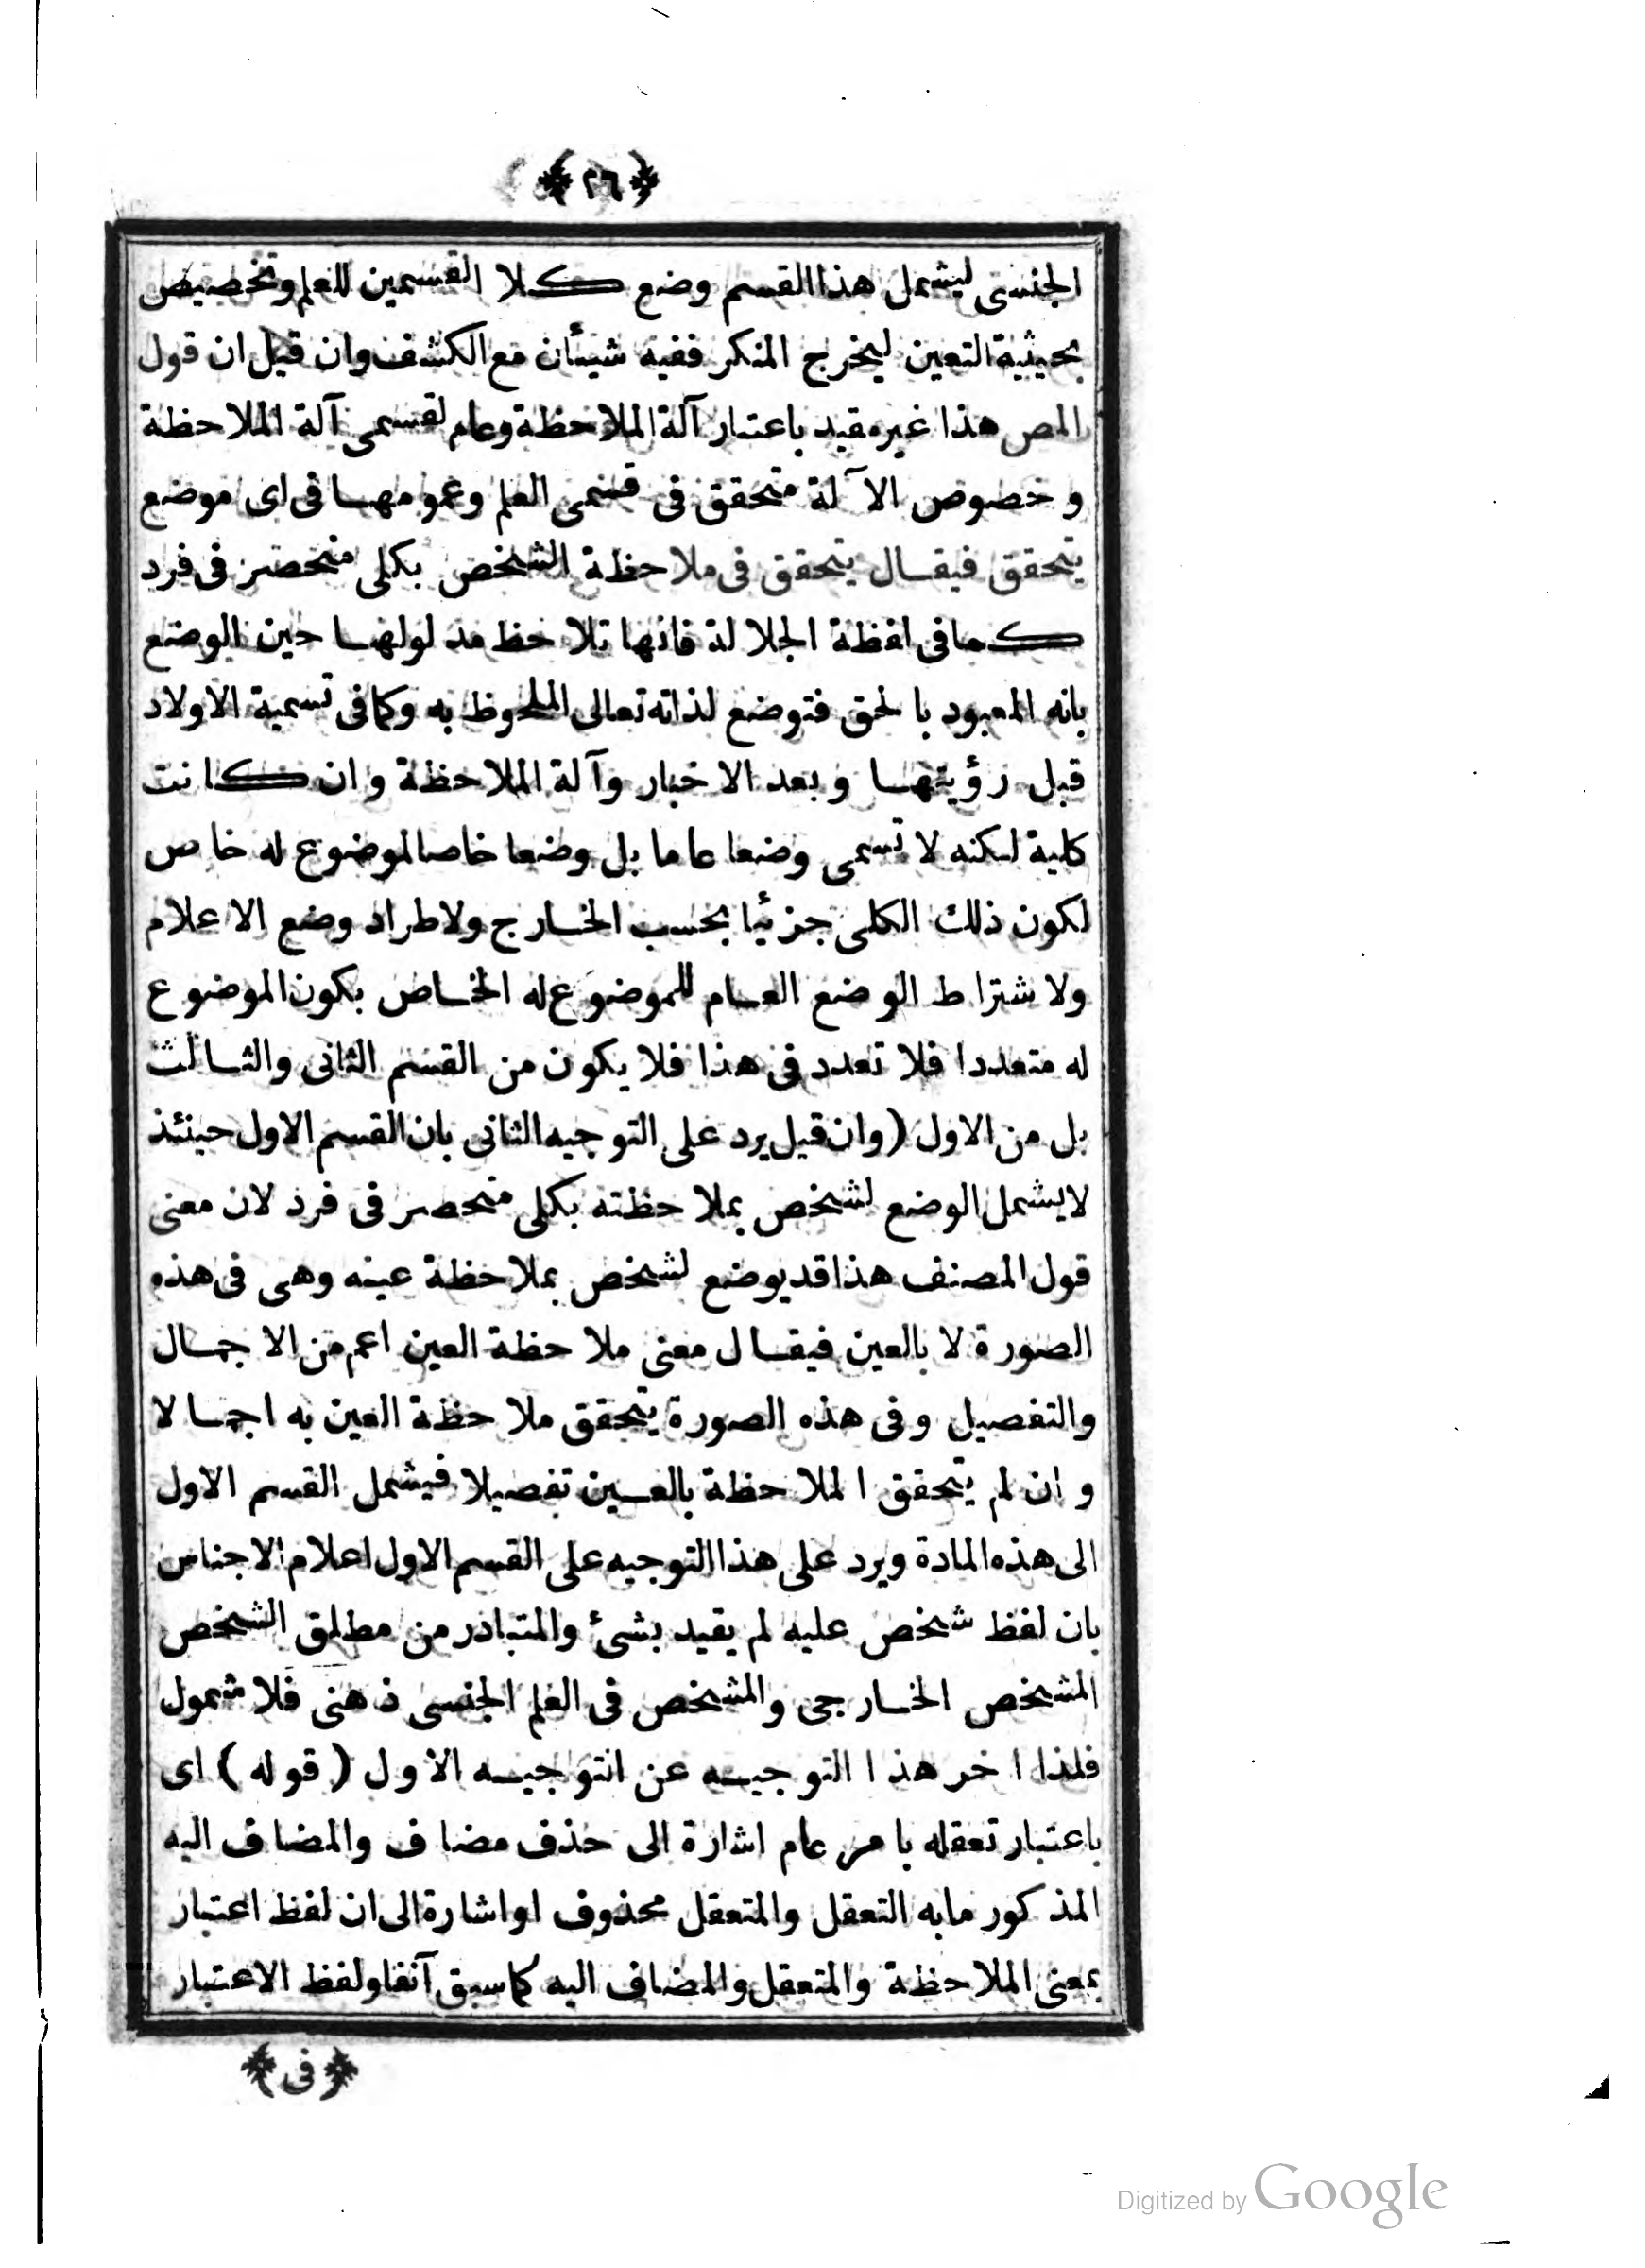 ﴿ ٢٦ ﴾
الجنسى ليشمل هذا القسم وضع كلا القسمين للعلم وتخصيص
بحيثية التعين ليخرج المنكر ففيه شيئان مع الكشف وان قيل ان قول
المص هذا غير مقيد باعتبار آلة الملاحظة وعام لقسمى آلة الملاحظة
وخصوص الآلة متحقق فى قسمى العلم وعمومها فى اى موضع
يتحقق فيقال يتحقق فى ملاحظة الشخص بكلى منحصر فى فرد
كما فى لفظة الجلالة فانها تلاحظ مدلولها حين الوضع
بانه المعبود بالحق فتوضع لذاته تعالى الملحوظ به وكما فى تسمية الاولاد
قبل رؤيتها وبعد الاخبار وآلة الملاحظة وان كانت
كلية لكنه لا تسمى وضعا عاما بل وضعا خاصا لموضوع له خاص
لكون ذلك الكلى جزئيا بحسب الخارج ولاطراد وضع الاعلام
ولاشتراط الوضع العام للموضوع له الخاص بكون الموضوع
له متعددا فلا تعدد فى هذا فلا يكون من القسم الثانى والثالث
بل من الاول (وان قيل يرد على التوجيه الثانى بان القسم الاول حينئذ
لا يشمل الوضع لشخص بملاحظته بكلى منحصر فى فرد لان معنى
قول المصنف هذا قد يوضع لشخص بملاحظة عينه وهى فى هذه
الصورة لا بالعين فيقال معنى ملاحظة العين اعم من الاجمال
والتفصيل وفى هذه الصورة يتحقق ملاحظة العين به اجمالا
وان لم يتحقق الملاحظة بالعين تفصيلا فيشمل القسم الاول
الى هذه المادة ويرد على هذا التوجيه على القسم الاول اعلام الاجناس
بان لفظ شخص عليه لم يقيد بشئ والمتبادر من مطلق الشخص
المشخص الخارجى والمشخص فى العلم الجنسى ذهنى فلا شمول
فلذا اخر هذا التوجيه عن التوجيه الاول (قوله) اى
باعتبار تعقله بامر عام اشارة الى حذف مضاف والمضاف اليه
المذكور مابه التعقل والمتعقل محذوف او اشارة الى ان لفظ اعتبار
بمعنى الملاحظة والمتعقل والمضاف اليه كما سبق آنفا ولفظ الاعتبار
﴿ فى ﴾
Digitized by Google